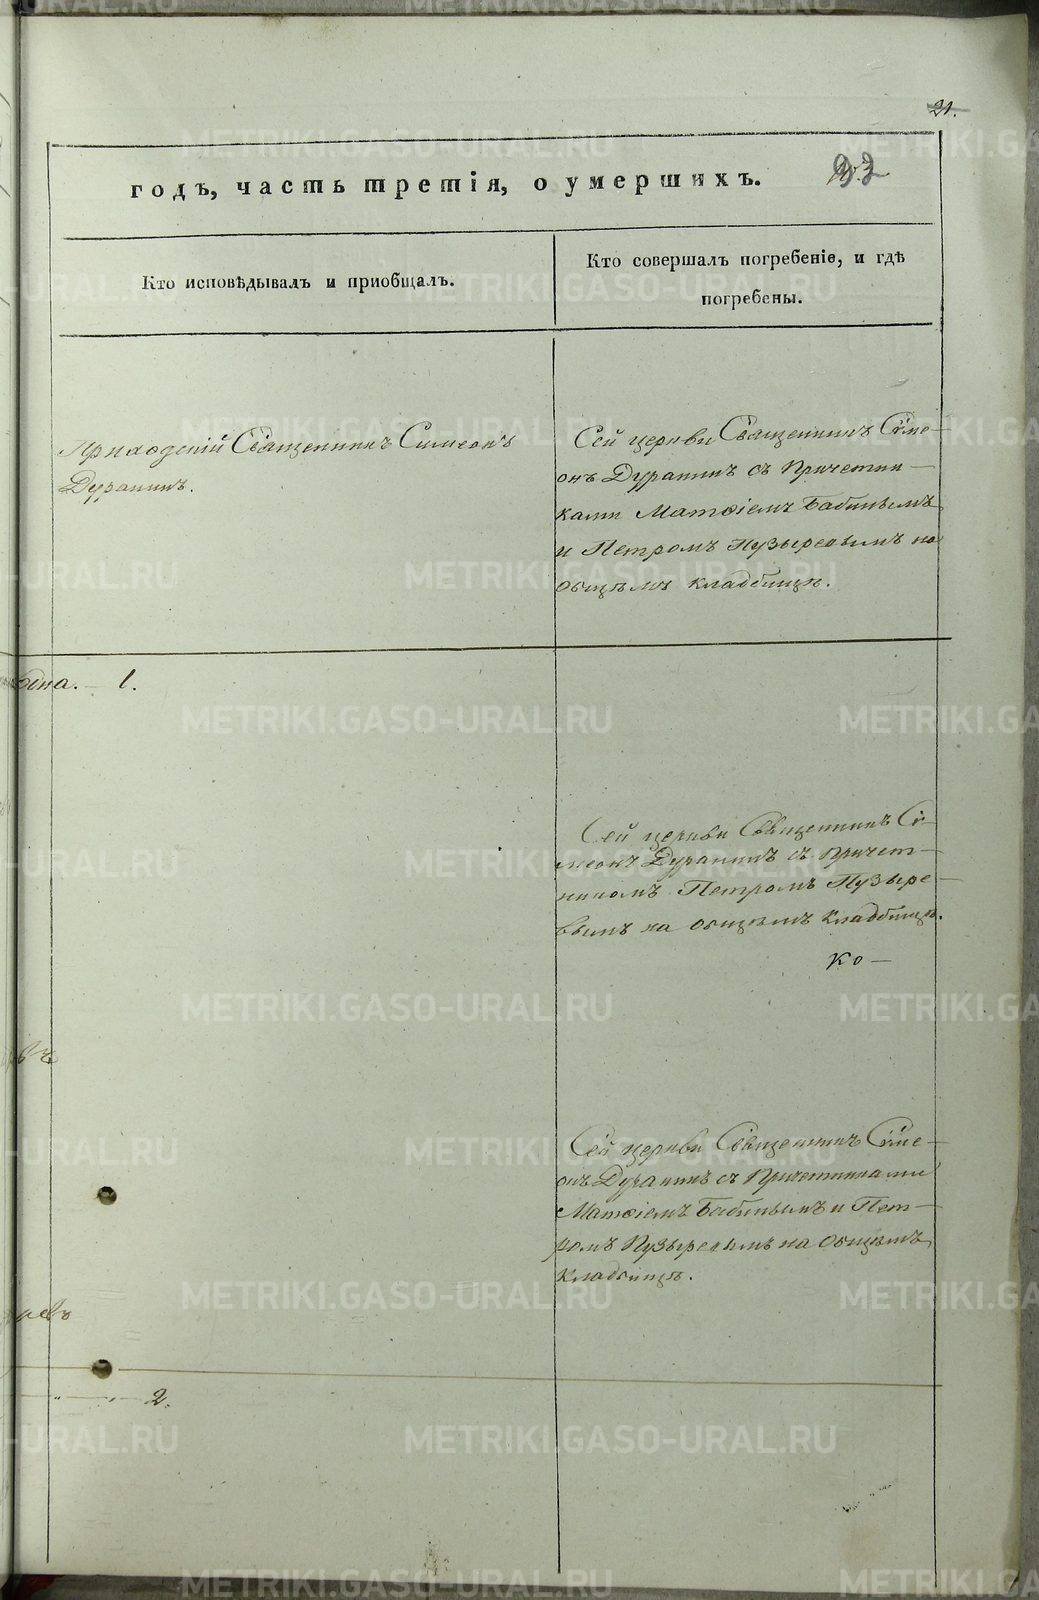 21.
годъ, часть третія, о умершихъ.
Кто исповѣдывалъ и пріобщалъ.
Кто совершалъ погребеніе, и гдѣ
погребены.
Приходскій Священникъ Симеонъ
Дуранинъ.
Сей церкви Священникъ Симе-
онъ Дуранинъ съ Причетни-
ками Матѳіемъ Бабинымъ
и Петромъ Пузыревымъ на
общемъ кладбищѣ.
1.
Сей церкви Священникъ Си-
меонъ Дуранинъ съ Причет-
никомъ Петромъ Пузыре-
вымъ на общемъ кладбищѣ.
Ко-
Сей церкви Священникъ Симе-
онъ Дуранинъ съ Причетниками
Матѳіемъ Бабинымъ и Пет-
ромъ Пузыревымъ на общемъ
кладбищѣ.
2.
METRIKI.GASO-URAL.RU